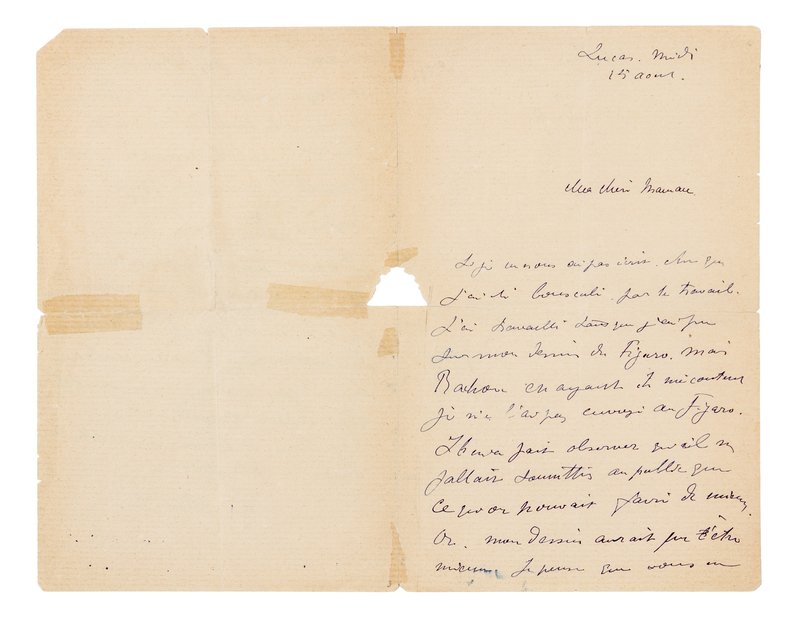 Lucas. Midi
15 aout.
Ma chère Maman
Si je ne vous ai pas écrit c'est que
j'ai été bousculé par le travail.
J'ai travaillé tant que j'ai pu
sur mon dessin du Figaro. mais
ayant été mécontent
je ne l'ai pas envoyé au Figaro.
Il m'a fait observer qu'il ne
fallait soumettre au public que
ce qu'on pouvait faire de mieux.
Or. mon dessin aurait pu être
mieux Je pense que vous en